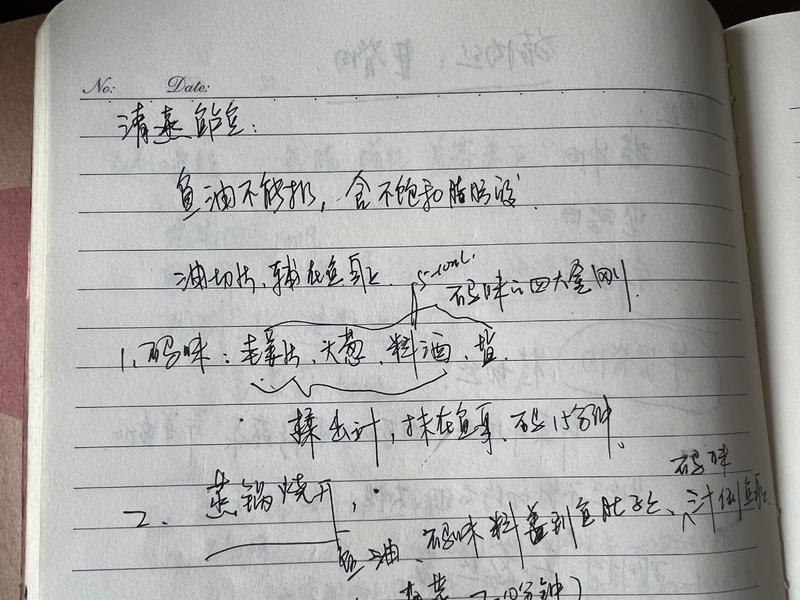 No: Date:
清蒸鲈鱼:
鱼油不能扔,含不饱和脂肪酸.
油切片、铺在鱼身上 5-10mL. 码味的四大金刚
1、码味:老姜片、大葱、料酒、盐.
揉出汁,抹在鱼身、码15分钟。
2、蒸锅烧开,
鱼油、码味料盖到鱼肚子上、码味汁倒鱼身上
7-10分钟)